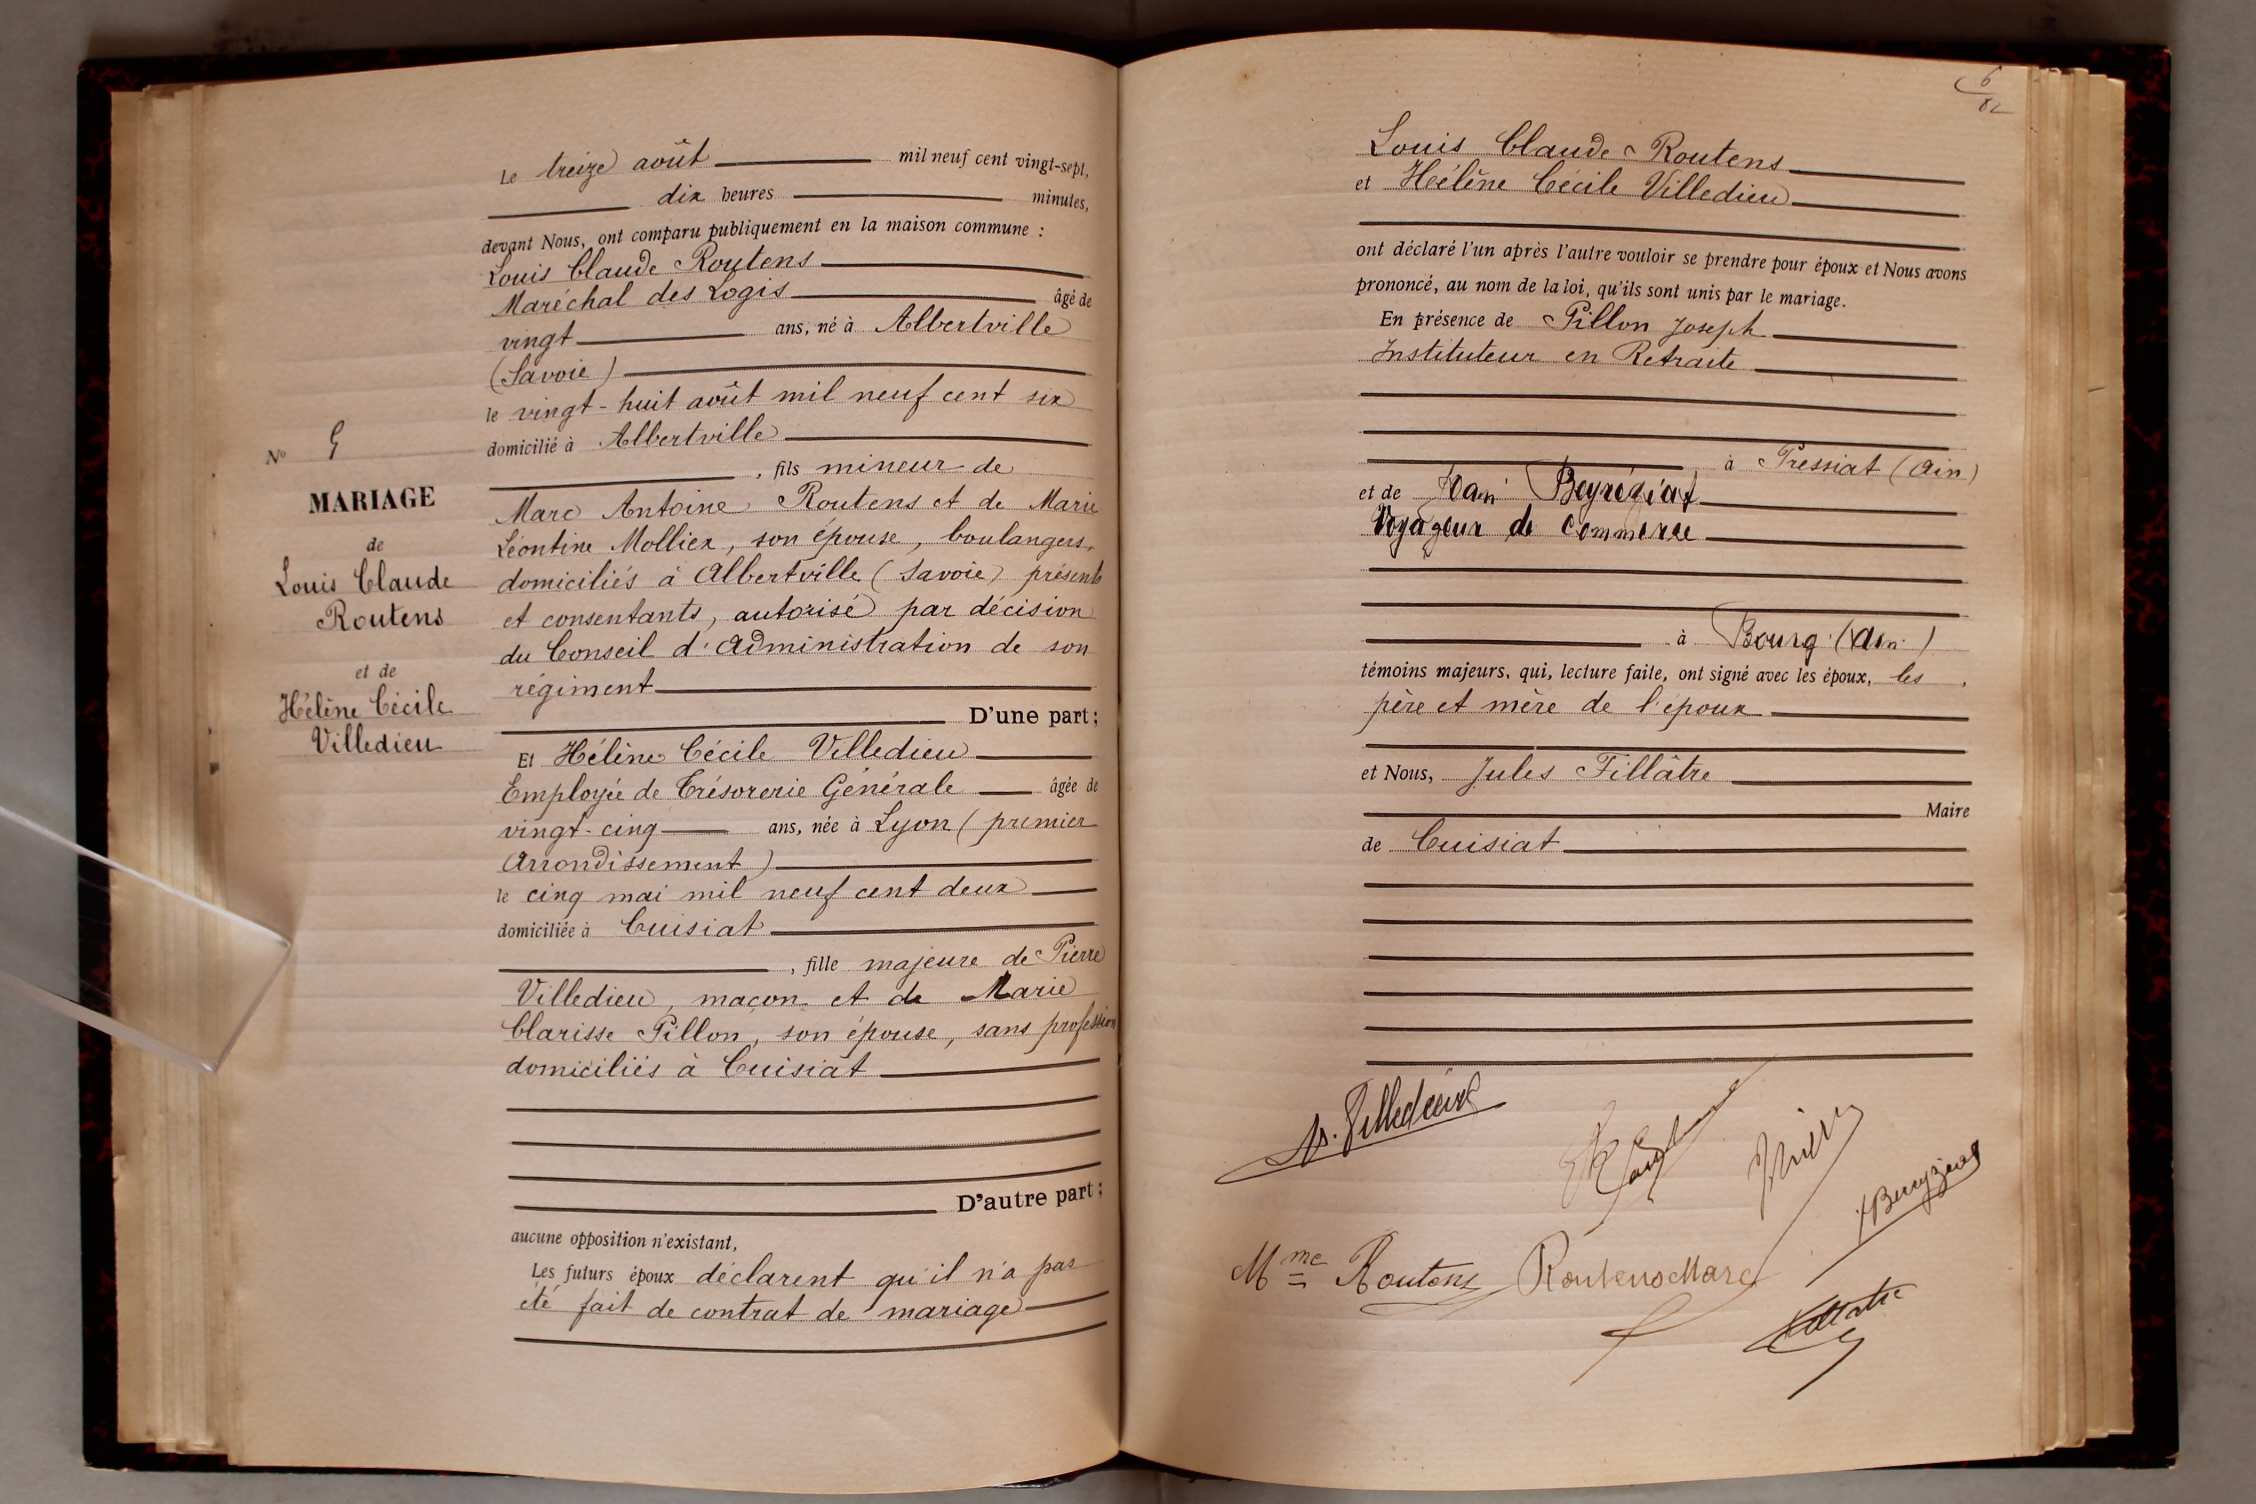 N° 9
MARIAGE
de
Louis Claude
Routens
et de
Hélène Cécile
Villedieu
Le treize août mil neuf cent vingt-sept,
dix heures minutes,
devant Nous, ont comparu publiquement en la maison commune :
Louis Claude Routens
Maréchal des Logis âgé de
vingt ans, né à Albertville
(Savoie)
le vingt-huit août mil neuf cent six
domicilié à Albertville
, fils mineur de
Marc Antoine Routens et de Marie
Léontine Mollier, son épouse, boulangers,
domiciliés à Albertville (Savoie) présents
et consentants, autorisé par décision
du Conseil d'Administration de son
régiment
D'une part ;
Et Hélène Cécile Villedieu
Employée de Trésorerie Générale âgée de
vingt-cinq ans, née à Lyon (premier
Arrondissement)
le cinq mai mil neuf cent deux
domiciliée à Cuisiat
, fille majeure de Pierre
Villedieu, maçon et de Marie
Clarisse Pillon, son épouse, sans profession
domiciliés à Cuisiat
D'autre part ;
aucune opposition n'existant,
Les futurs époux déclarent qu'il n'a pas
été fait de contrat de mariage
6
82
Louis Claude Routens
et Hélène Cécile Villedieu
ont déclaré l'un après l'autre vouloir se prendre pour époux et Nous avons
prononcé, au nom de la loi, qu'ils sont unis par le mariage.
En présence de Pillon Joseph
Instituteur en Retraite
à Pressiat (Ain)
et de
Voyageur de Commerce
à Bourg (Ain)
témoins majeurs, qui, lecture faite, ont signé avec les époux, les
père et mère de l'époux
et Nous, Jules Fillâtre
Maire
de Cuisiat
H. Villedieu
Mme Routens Routens Marc